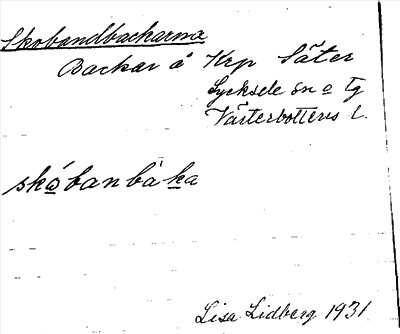 Skobandbackarna
Backar å Krp Säter
Lycksele sn o tg
Västerbottens l.
skòbanbàka
Lisa Lidberg 1931